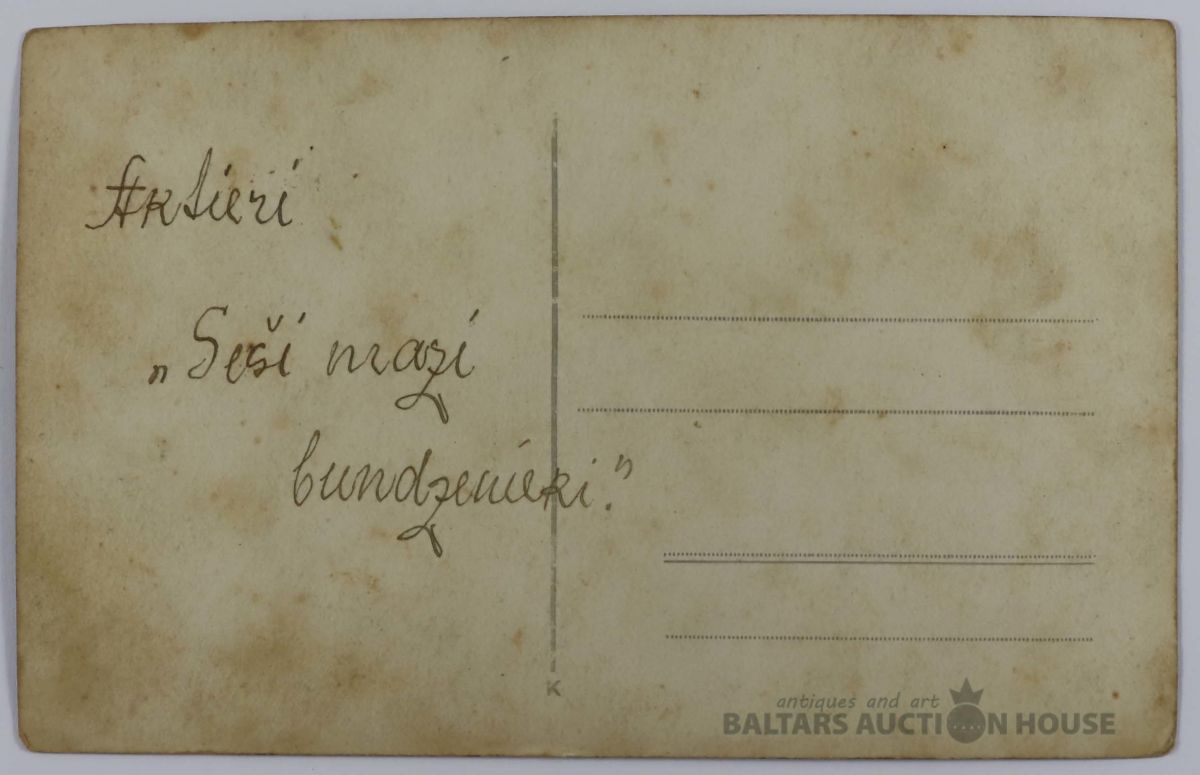 Aktieri
„Seši mazi
bundzenieki.”
K
antiques and art
BALTARS AUCTION HOUSE